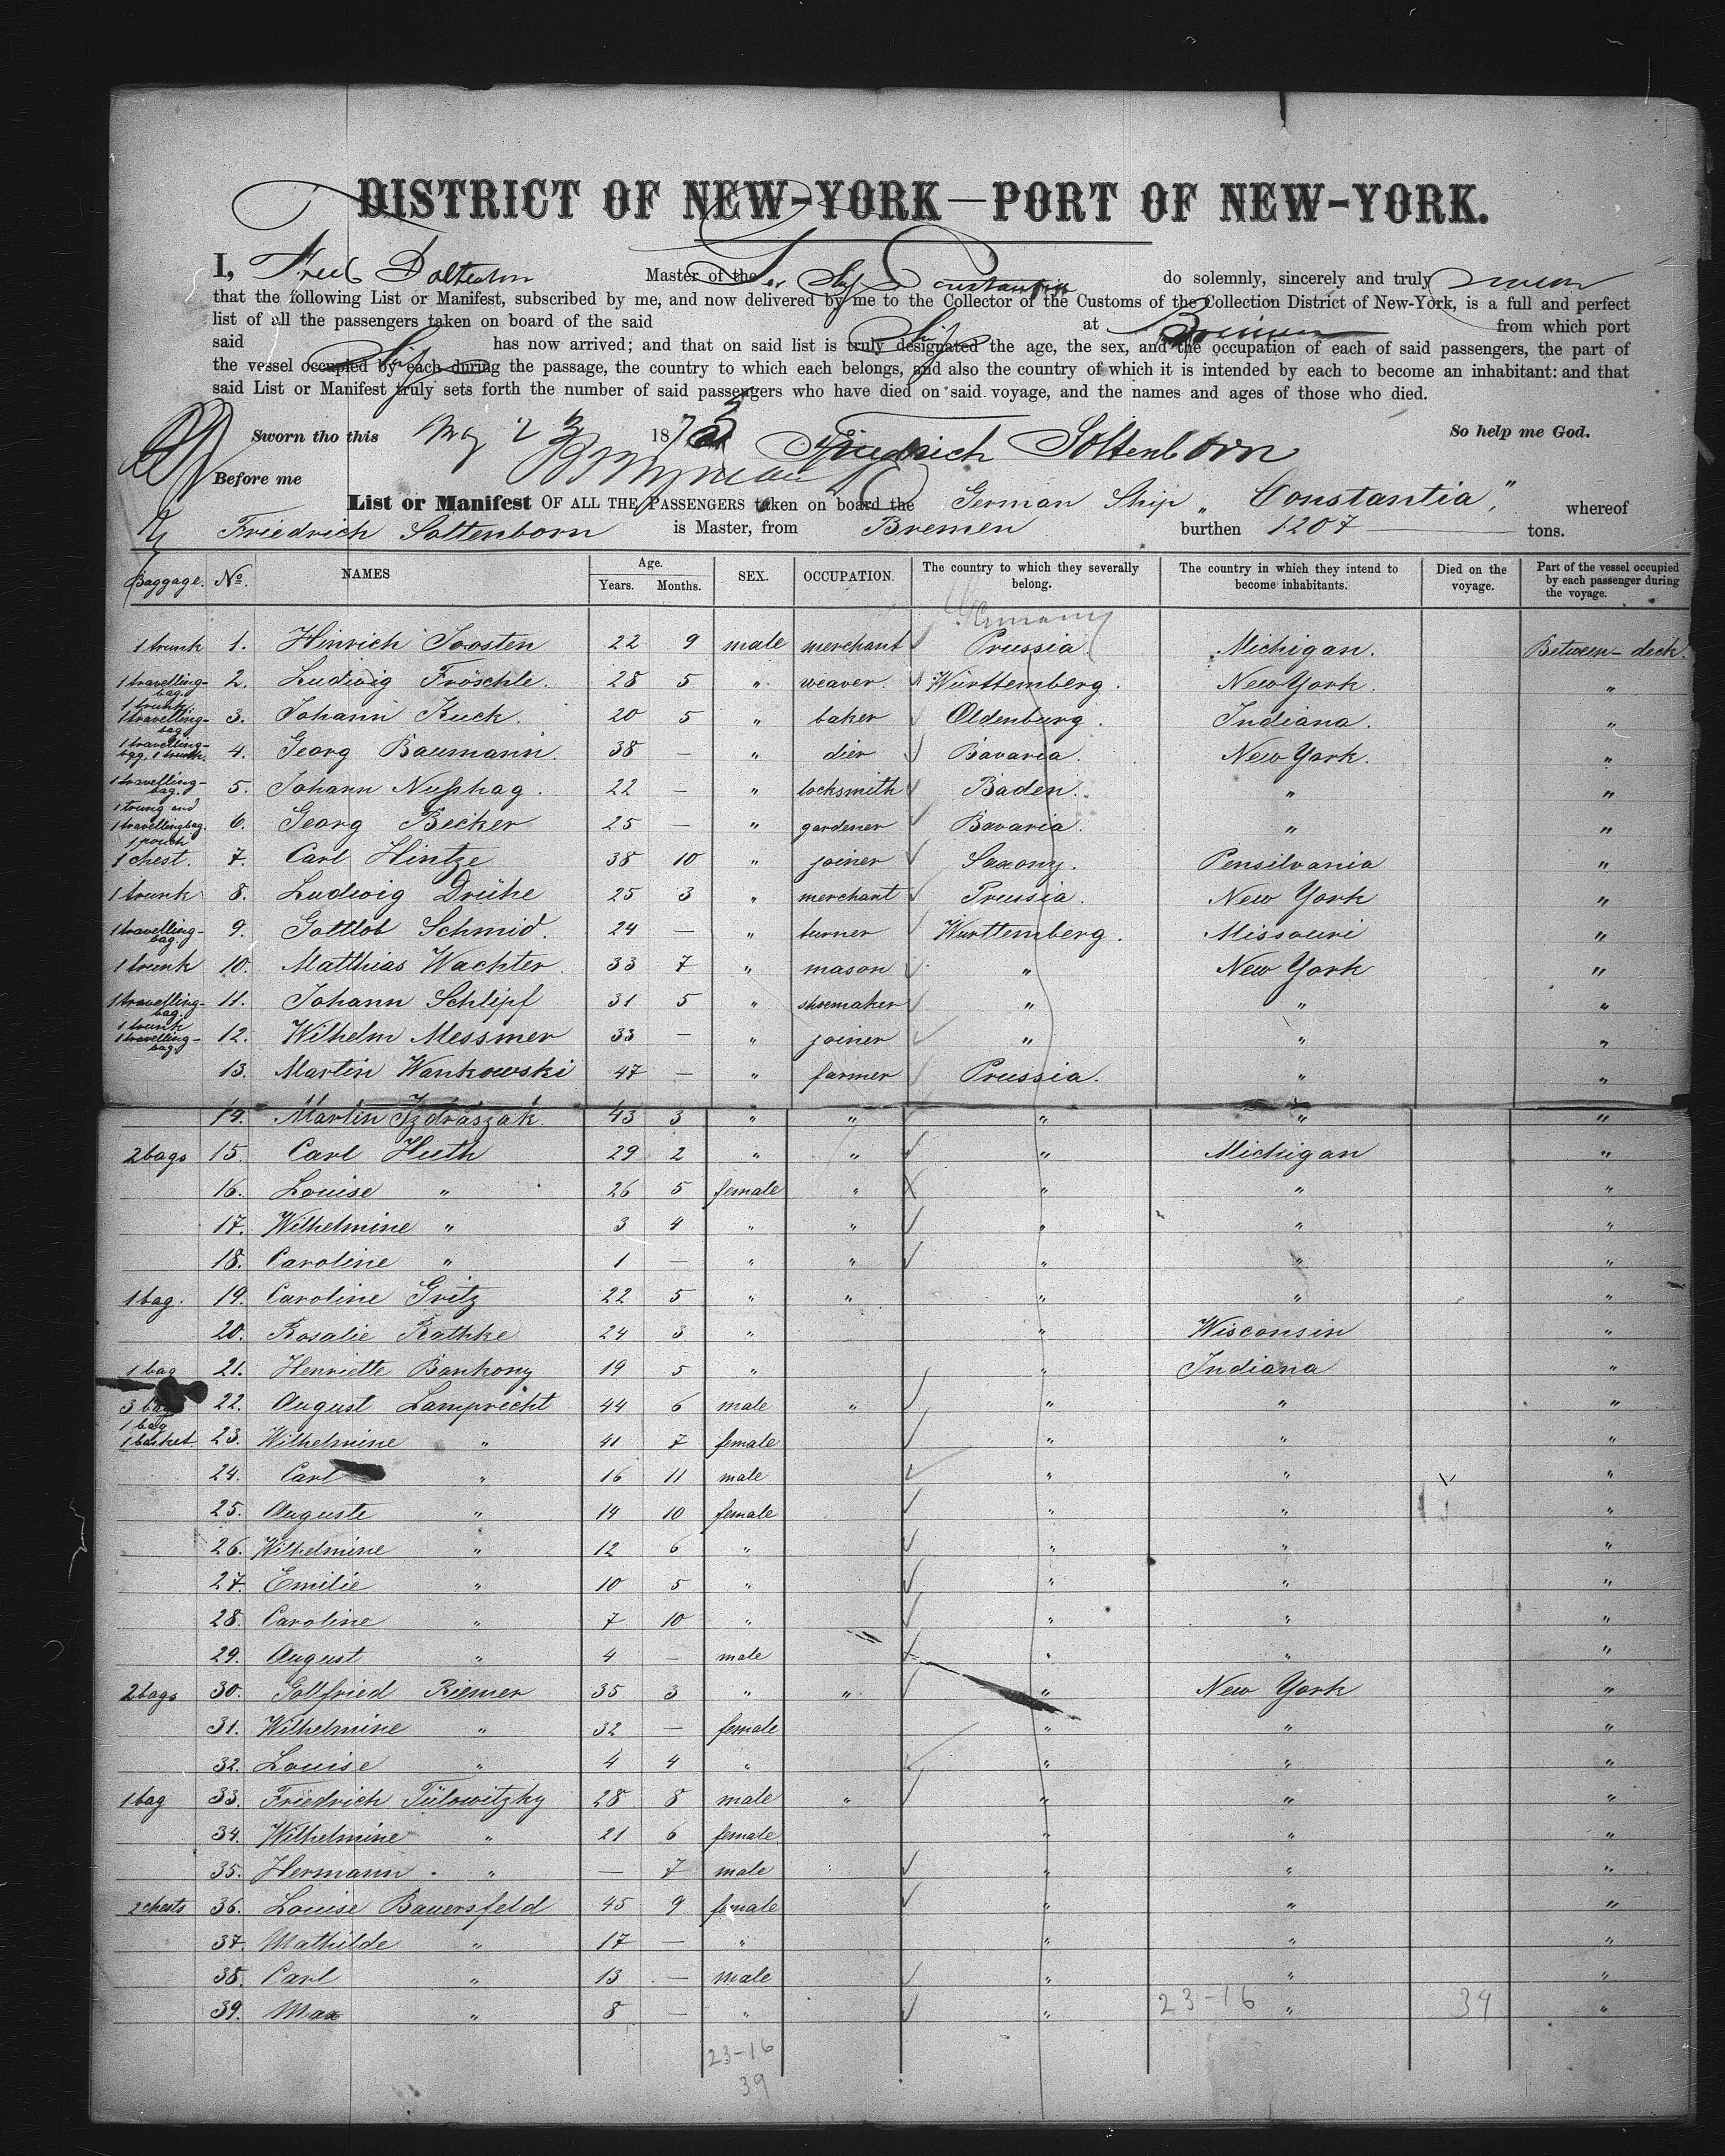 DISTRICT OF NEW-YORK—PORT OF NEW-YORK.
I, Master of the Ship Constantia do solemnly, sincerely and truly swear
that the following List or Manifest, subscribed by me, and now delivered by me to the Collector of the Customs of the Collection District of New-York, is a full and perfect
list of all the passengers taken on board of the said Ship at Bremen from which port
said Ship has now arrived; and that on said list is truly designated the age, the sex, and the occupation of each of said passengers, the part of
the vessel occupied by each during the passage, the country to which each belongs, and also the country of which it is intended by each to become an inhabitant: and that
said List or Manifest truly sets forth the number of said passengers who have died on said voyage, and the names and ages of those who died.
Sworn tho this May 23 1873 Friedrich Soltenborn So help me God.
Before me
List or Manifest OF ALL THE PASSENGERS taken on board the German Ship „Constantia," whereof
Friedrich Soltenborn is Master, from Bremen burthen 1207 tons.
Baggage. No. NAMES Age. Years. Months. SEX. OCCUPATION. The country to which they severally belong. The country in which they intend to become inhabitants. Died on the voyage. Part of the vessel occupied by each passenger during the voyage.
Germany
1 trunk 1. Hinrich Joosten 22 9 male merchant Prussia Michigan. Between-deck.
1 travelling-bag. 2. Ludwig Fröschle. 28 5 " weaver Württemberg. New York. "
1 trunk. 1 travelling-bag 3. Johann Kuck. 20 5 " baker Oldenburg. Indiana. "
1 travelling-bag, 1 trunk. 4. Georg Baumann. 38 — " dier Bavaria. New York. "
1 travelling-bag. 5. Johann Nußhag. 22 — " locksmith Baden. " "
1 trung and 1 travellingbag. 6. Georg Becker 25 — " gardener Bavaria. " "
1 pouch 1 chest. 7. Carl Hintze 38 10 " joiner Saxony. Pensilvania "
1 trunk 8. Ludwig Drühe 25 3 " merchant Prussia. New York "
1 travelling-bag. 9. Gottlob Schmid. 24 — " turner Württemberg. Missouri "
1 trunk 10. Matthias Wachter. 33 7 " mason " New York "
1 travelling-bag. 11. Johann Schlipf 31 5 " shoemaker " " "
1 trunk 1 travelling-bag. 12. Wilhelm Messmer 33 — " joiner " " "
13. Martin Wankowski 47 — " farmer Prussia. " "
14. Martin Izdraszak 43 3 " " " " "
2 bags 15. Carl Huth 29 2 " " " Michigan "
16. Louise " 26 5 female " " " "
17. Wilhelmine " 3 4 " " " " "
18. Caroline " 1 — " " " " "
1 bag. 19. Caroline Gritz 22 5 " " " " "
20. Rosalie Rathke 24 3 " " Wisconsin "
1 bag 21. Henriette Bankony 19 5 " " Indiana "
3 bags 22. August Lamprecht 44 6 male " " " "
1 bag 1 basket 23. Wilhelmine " 41 7 female " " "
24. Carl " 16 11 male " " "
25. Auguste " 14 10 female " " "
26. Wilhelmine " 12 6 " " " "
27. Emilie " 10 5 " " " "
28. Caroline " 7 10 " " " "
29. August " 4 — male " " "
2 bags 30. Gottfried Riemer 35 3 " " " New York "
31. Wilhelmine " 32 — female " " "
32. Louise " 4 4 " " " "
1 bag 33. Friedrich Tülowitzky 28 8 male " " " "
34. Wilhelmine " 21 6 female " " "
35. Hermann " — 7 male " " "
2 chests 36. Louise Bauersfeld 45 9 female " " "
37. Mathilde " 17 — " " " "
38. Carl " 13 — male " " "
39. Max " 8 — " " " "
23-16 39
23-16
39